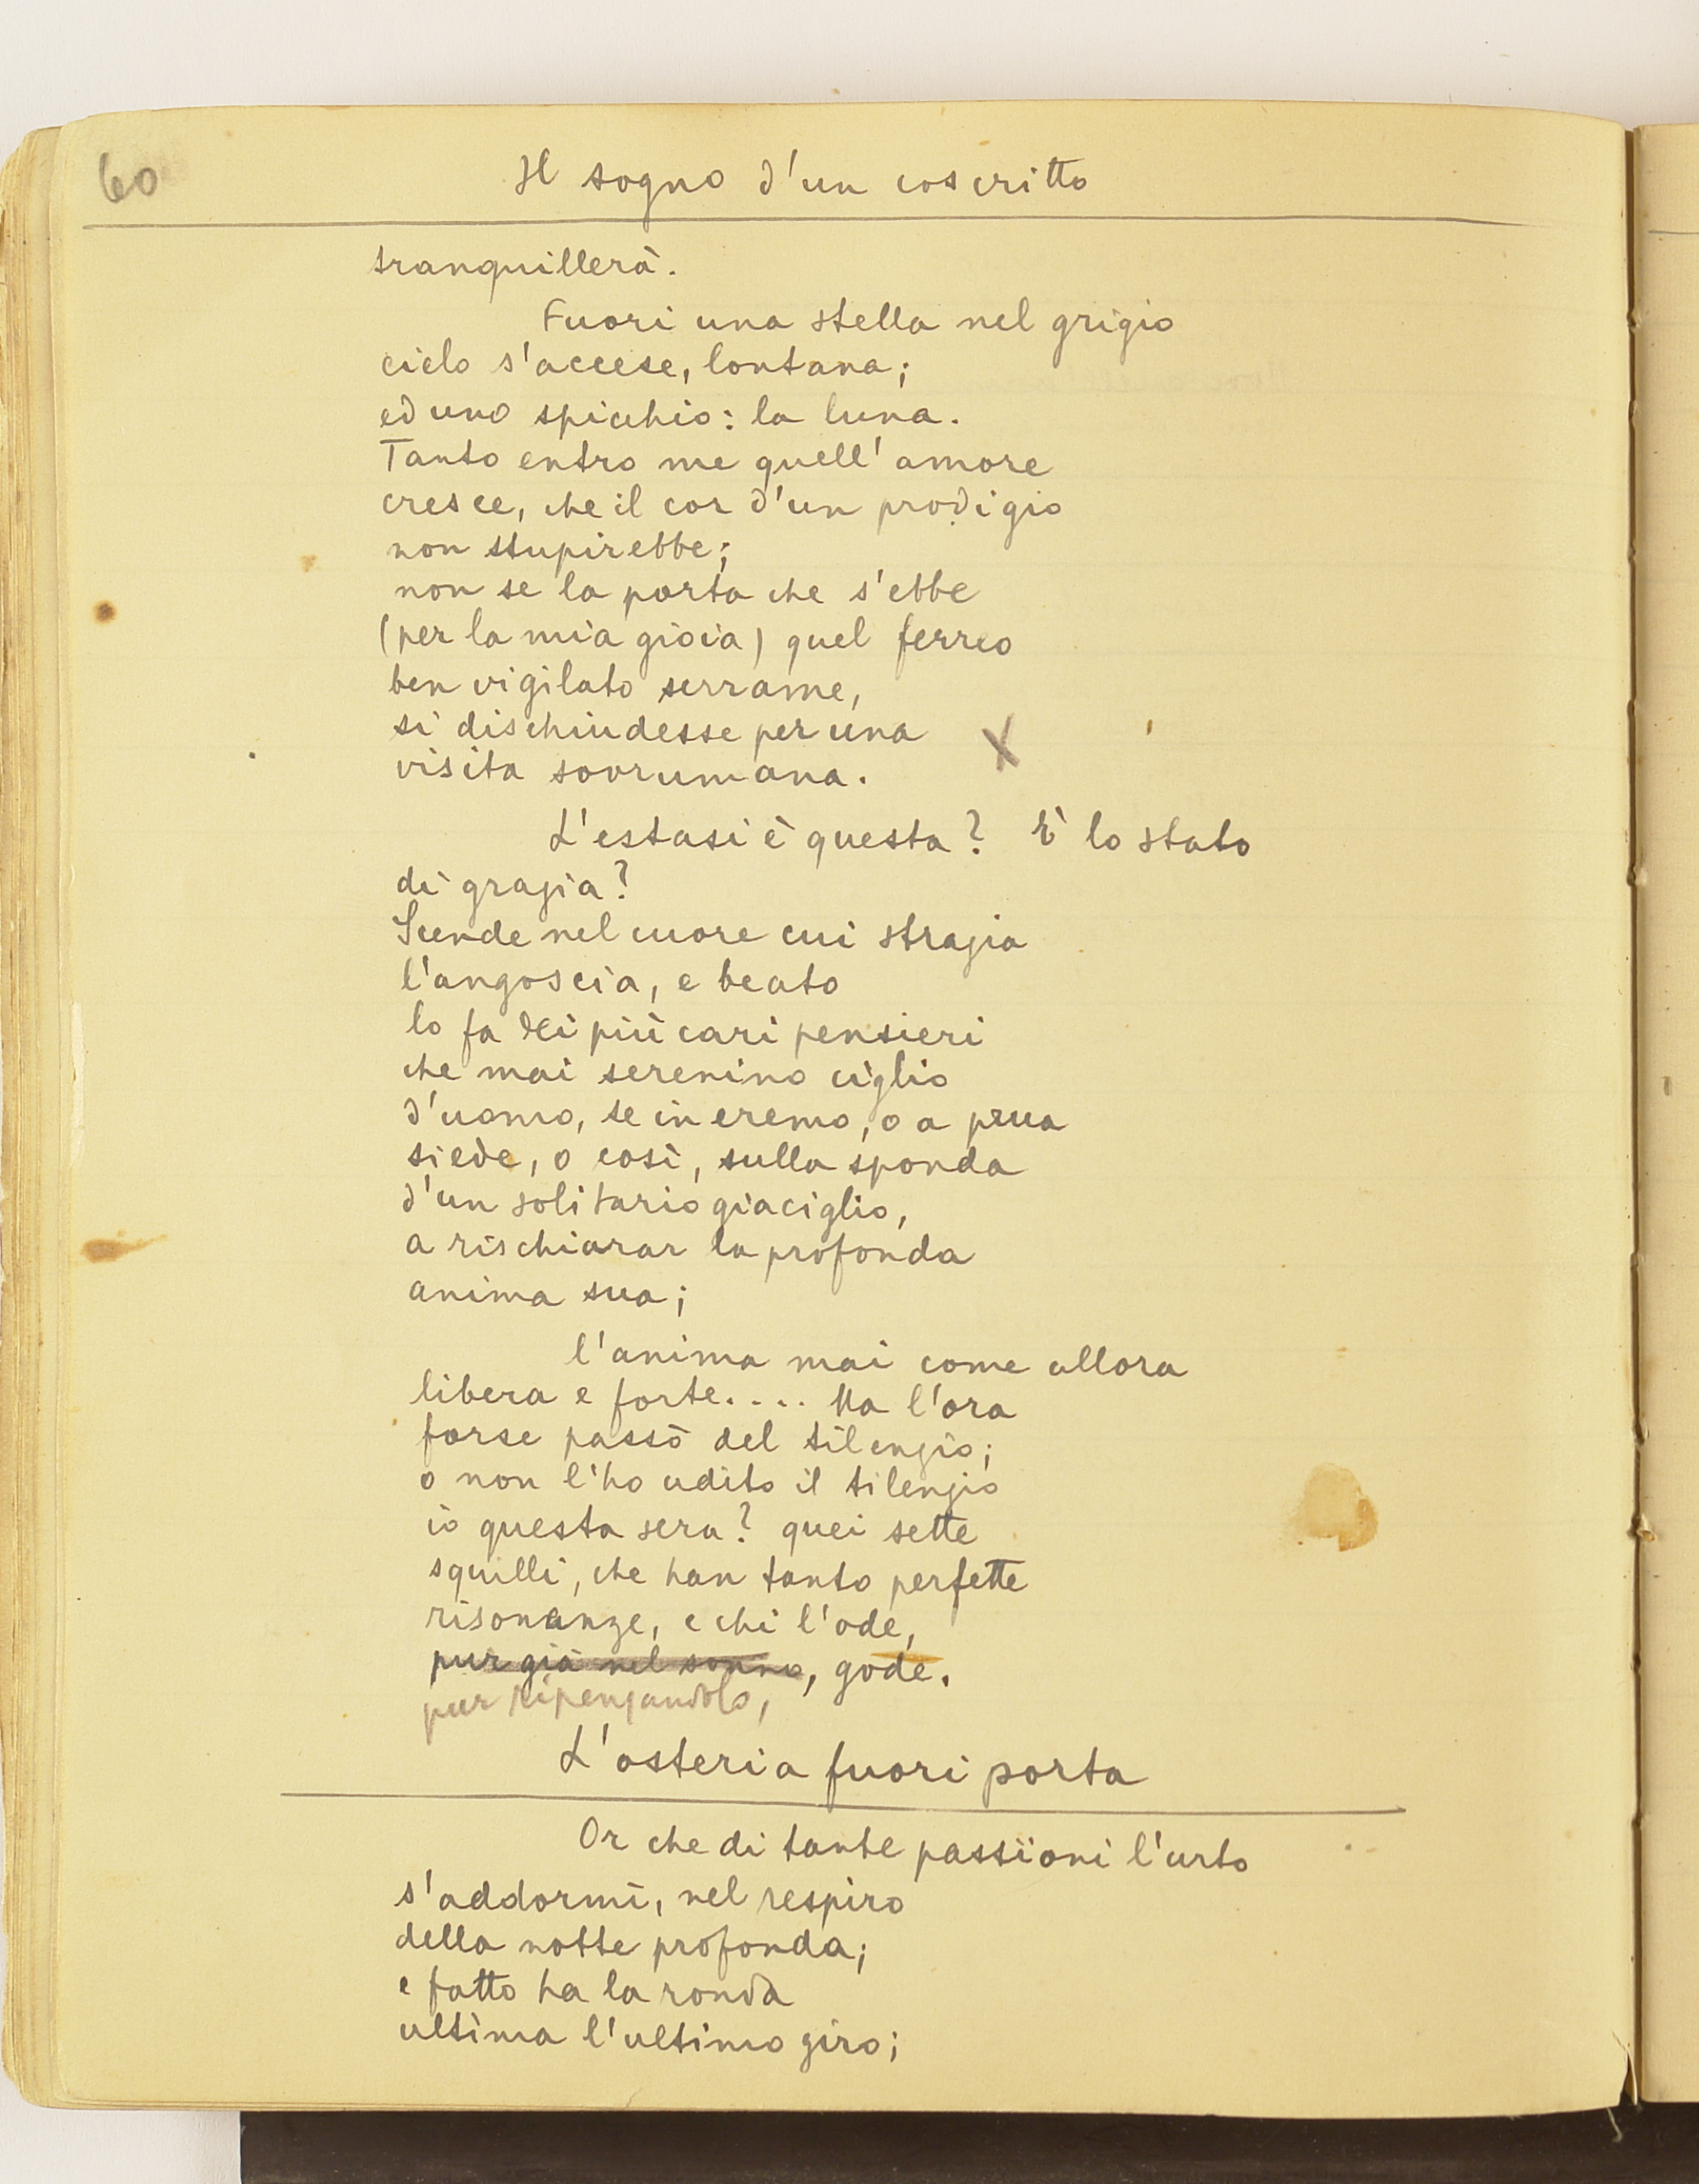 60
Il sogno d'un coscritto
tranquillerà.
Fuori una stella nel grigio
cielo s'accese, lontana;
ed uno spicchio: la luna.
Tanto entro me quell'amore
cresce, che il cor d'un prodigio
non stupirebbe;
non se la porta che s'ebbe
(per la mia gioia) quel ferreo
ben vigilato serrame,
si dischiudesse per una X
visita sovrumana.
L'estasi è questa? È lo stato
di grazia?
Scende nel cuore cui strazia
l'angoscia, e beato
lo fa dei più cari pensieri
che mai serenino ciglio
d'uomo, se in eremo, o a prua
siede, o così, sulla sponda
d'un solitario giaciglio,
a rischiarar la profonda
anima sua;
l'anima mai come allora
libera e forte.... Ma l'ora
forse passò del silenzio;
o non l'ho udito il silenzio
io questa sera? quei sette
squilli, che han tanto perfette
risonanze, e chi l'ode,
pur già nel sonno, gode.
pur ripensandolo,
L'osteria fuori porta
Or che di tante passïoni l'urto
s'addormì, nel respiro
della notte profonda;
e fatto ha la ronda
ultima l'ultimo giro;